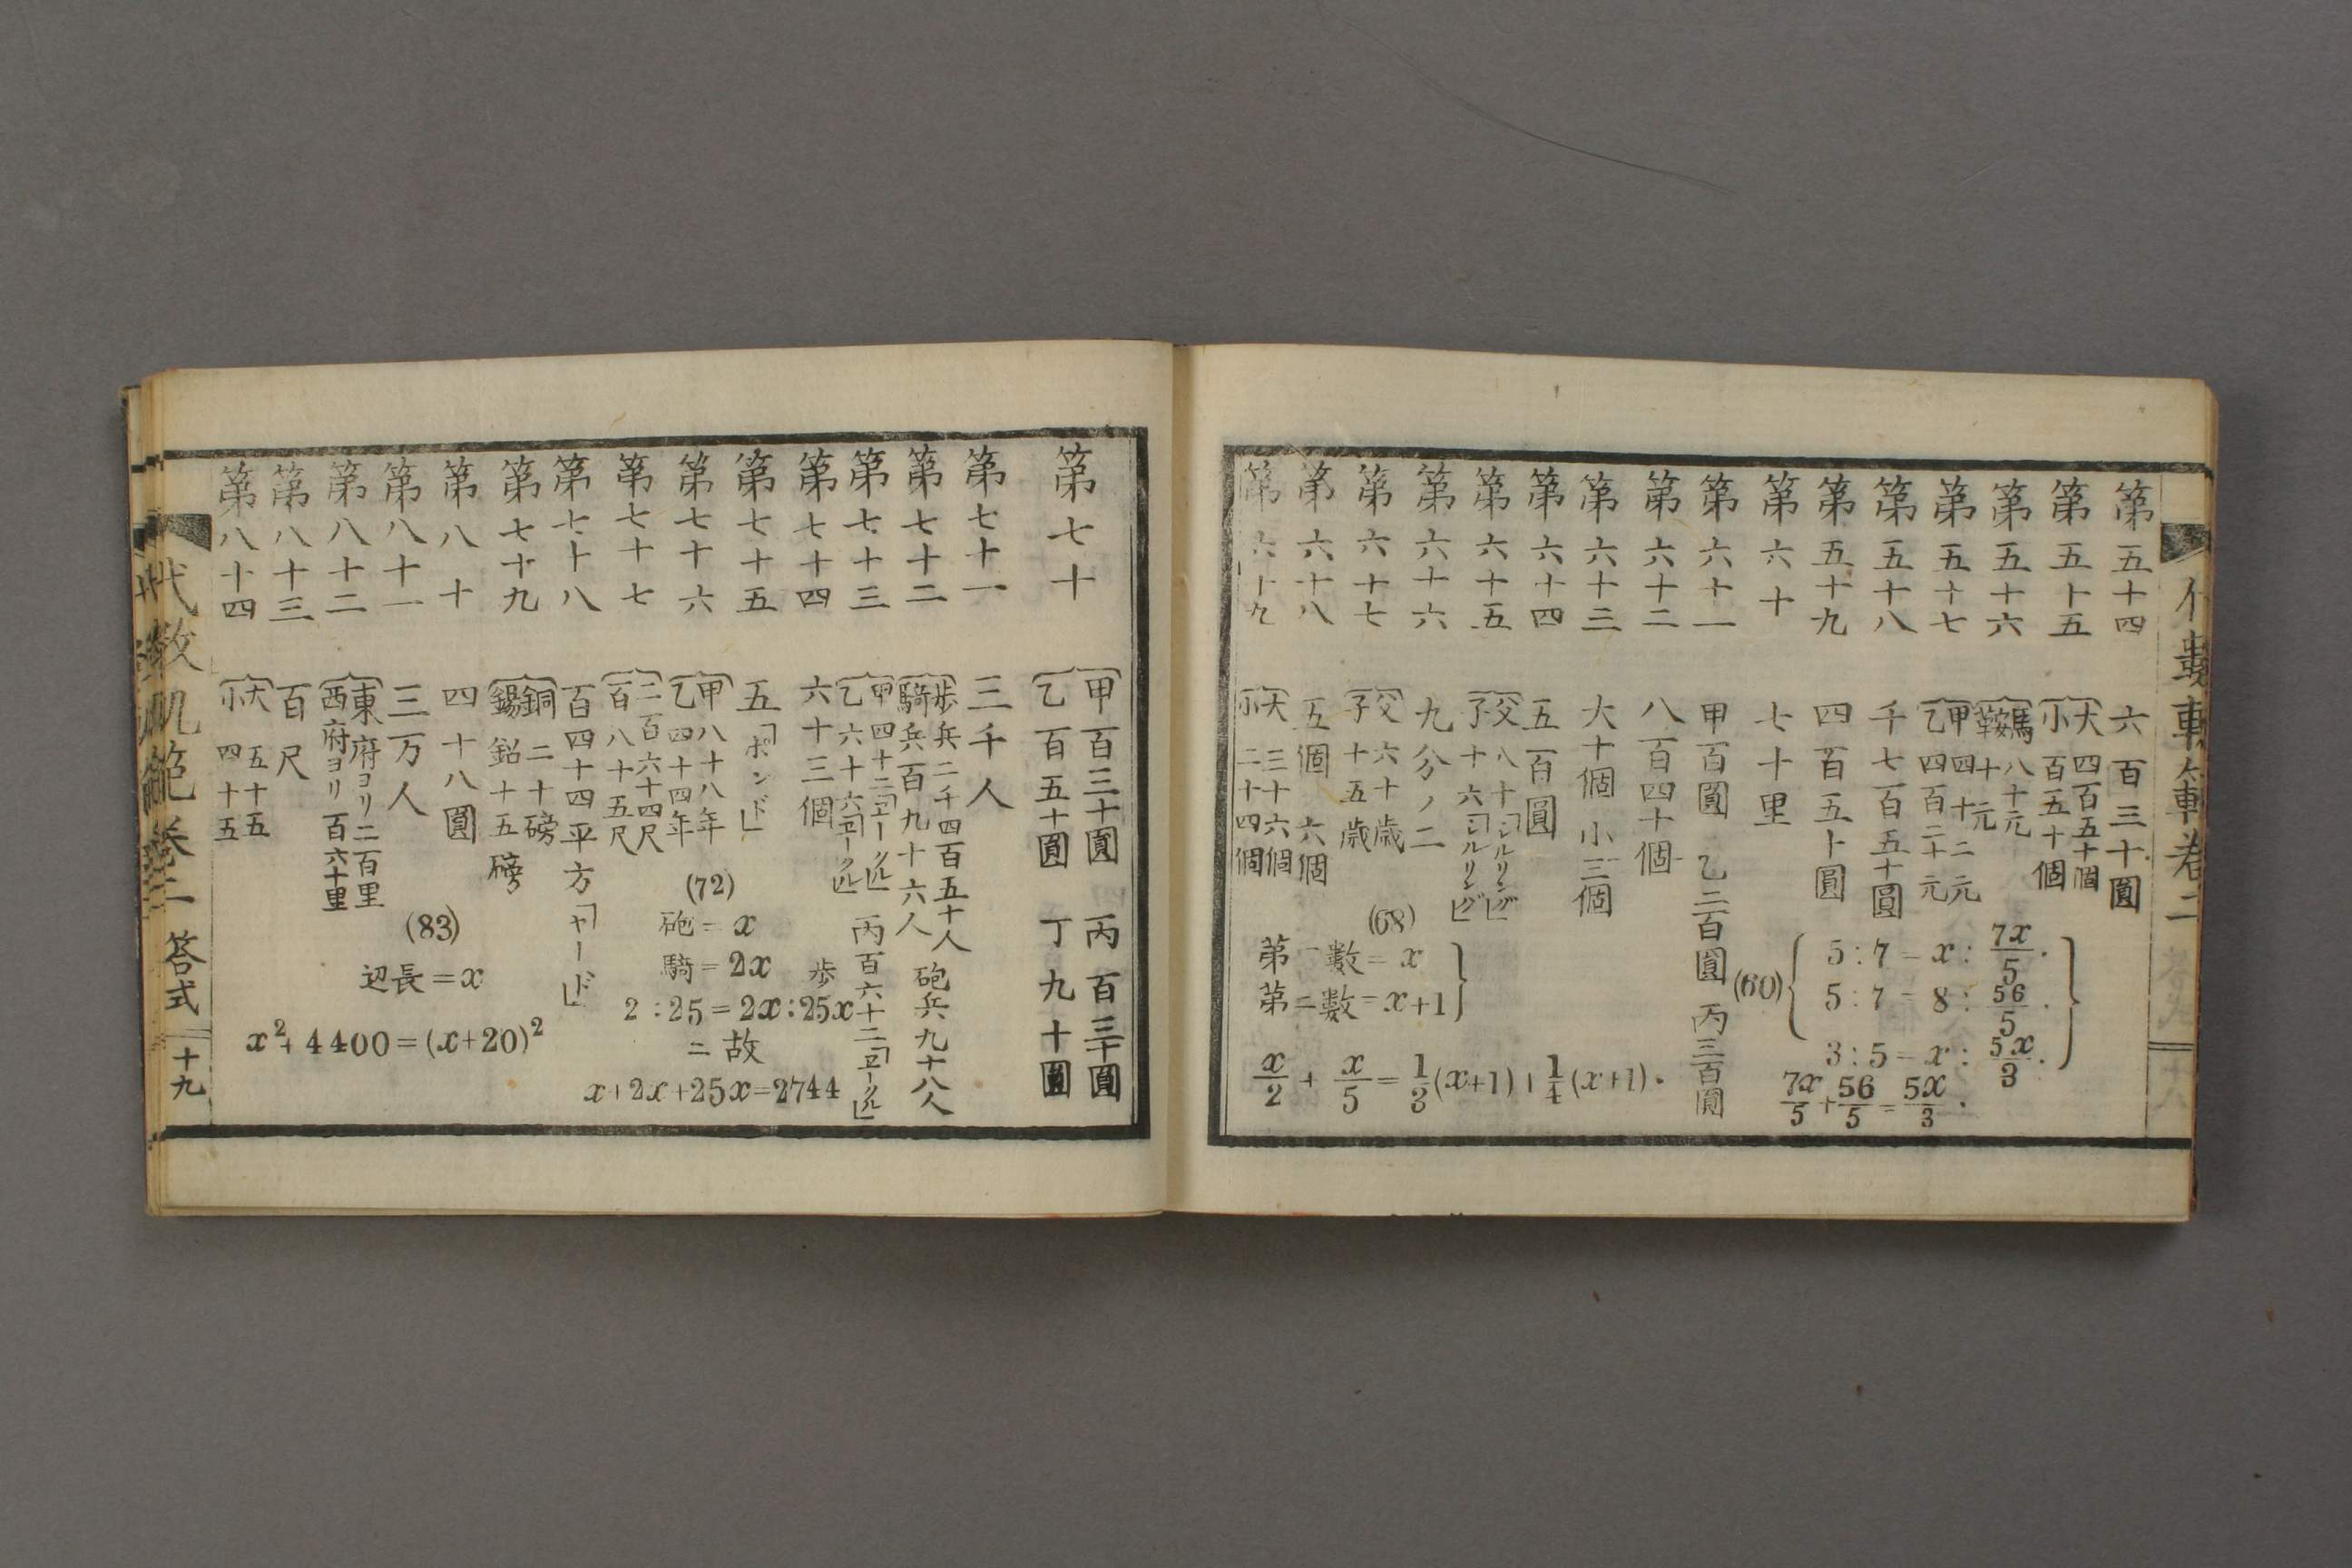 第五十四 六百三十圓
第五十五 大四百五十個
小百五十個
第五十六 馬八十元
鞍十元
第五十七 甲四十二元
乙四百二十元
第五十八 千七百五十圓
第五十九 四百五十圓
第六十 七十里
(60)
5:7=x:7x/5.
5:7=8:56/5.
3:5=x:5x/3.
7x/5+56/5=5x/3.
第六十一 甲百圓 乙二百圓 丙三百圓
第六十二 八百四十個
第六十三 大十個 小三個
第六十四 五百圓
第六十五 父八十「シルリング」
子十六「シルリング」
第六十六 九分ノ二
第六十七 父六十歳
子十五歳
第六十八 五個 六個
第六十九 大三十六個
小二十四個
(68)
第一數=x
第二數=x+1
x/2+x/5=1/3(x+1)+1/4(x+1).
第七十 甲百三十圓 丙百三十圓
乙百五十圓 丁九十圓
第七十一 三千人
第七十二 歩兵二千四百五十人
騎兵百九十六人 砲兵九十八人
第七十三 甲四十二「ヱークル」
乙六十六「ヱークル」 丙百六十二「ヱークル」
第七十四 六十三個
第七十五 五「ポンド」
第七十六 甲八十八年
乙四十四年
第七十七 二百六十四尺
百八十五尺
第七十八 百四十四平方「ヤード」
(72)
砲=x
騎=2x 歩
2:25=2x:25x
故ニ
x+2x+25x=2744
第七十九 銅二十磅
錫鉛十五磅
第八十 四十八圓
第八十一 三万人
第八十二 東府ヨリ二百里
西府ヨリ百六十里
第八十三 百尺
第八十四 大五十五
小四十五
(83)
辺長=x
x²+4400=(x+20)²
卷二 答式 十九